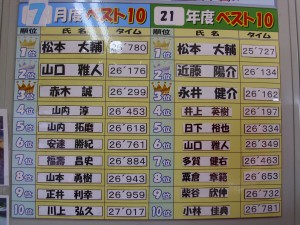 7月度ベスト10
順位 氏名 タイム
1位 松本 大輔 25"780
2位 山口 雅人 26"176
3位 赤木 誠 26"299
4位 山内 淳 26"453
5位 山内 拓磨 26"618
6位 安達 勝紀 26"761
7位 福壽 昌史 26"884
8位 山本 勇樹 26"943
9位 正井 利幸 26"959
10位 川上 弘久 27"017
21年度ベスト10
順位 氏名 タイム
1位 松本 大輔 25"727
2位 近藤 陽介 26"134
3位 永井 健介 26"162
4位 井上 英樹 26"197
5位 日下 裕也 26"334
6位 山口 雅人 26"349
7位 多賀 健右 26"463
8位 粟倉 章範 26"653
9位 柴谷 欣伸 26"732
10位 小林 佳典 26"781